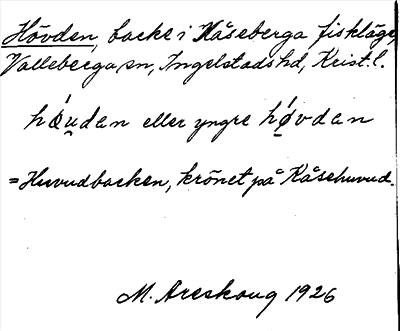 Hövden, backe i Kåseberga fiskläge,
Valleberga sn, Ingelstads hd, Krist. l.
hǿu̯dan eller yngre hǿvdan
= Huvudbacken, krönet på Kåsehuvud.
M. Areskoug 1926